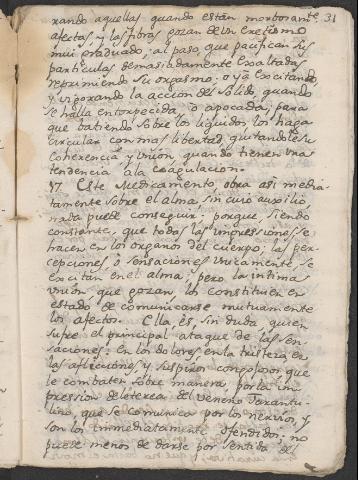 31
rando aquellas quando están morbosam.te
afectas y las fibras gozan de un Eretismo
mui graduado; al paso que pacifican sus
particulas demasiadamente Exaltadas
reprimiendo su orgasmo; o ya Excitando
y vigorando la acción del Solido, quando
se halla Entorpecida, o apocada; para
que batiendo sobre los liquidos los haga
circular con mas libertad, quitandole su
Coherencia y Unión, quando tienen una
tendencia a la coagulacion.
17. Este Medicamento, obra asi media-
tamente sobre el alma, sin cuio auxilio
nada puede conseguir: porque, siendo
constante, que todas las impresiones se
hacen en los organos del cuerpo; las per-
cepciones, o sensaciones unicamente se
Excitan en el alma; pero la intima
Unión que gozan, los constituie en
estado de comunicarse mutuamente
los afectos. Ella, es, sin duda, quien
sufre el principal ataque de las sen-
saciones: En los dolores, en la tristeza, en
las aflicciones, y suspiros congojosos que
le combaten sobre manera, por la im-
presion deleterea del veneno Tarantu-
lino, que se comunica por los nervios, y
son los inmediatamente ofendidos: no
puede menos de darse por sentida del